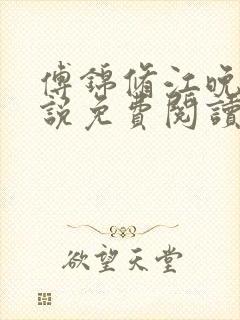 傅錦脩江晚
說免費閱讀
欲望天堂